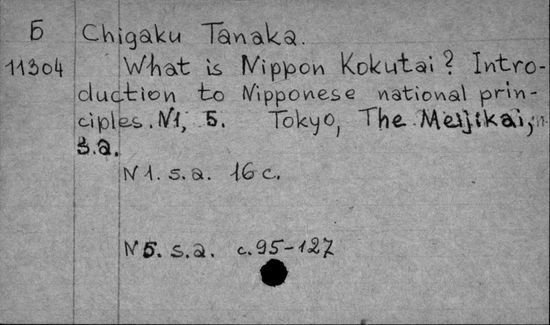 Б Chigaku Tanaka.
11304 What is Nippon Kokutai? Intro-
duction to Nipponese national prin-
ciples. N1, 5. Tokyo, The Meijikai,
s.a.
N1. s.a. 16 c.
N5. s.a. c.95-127